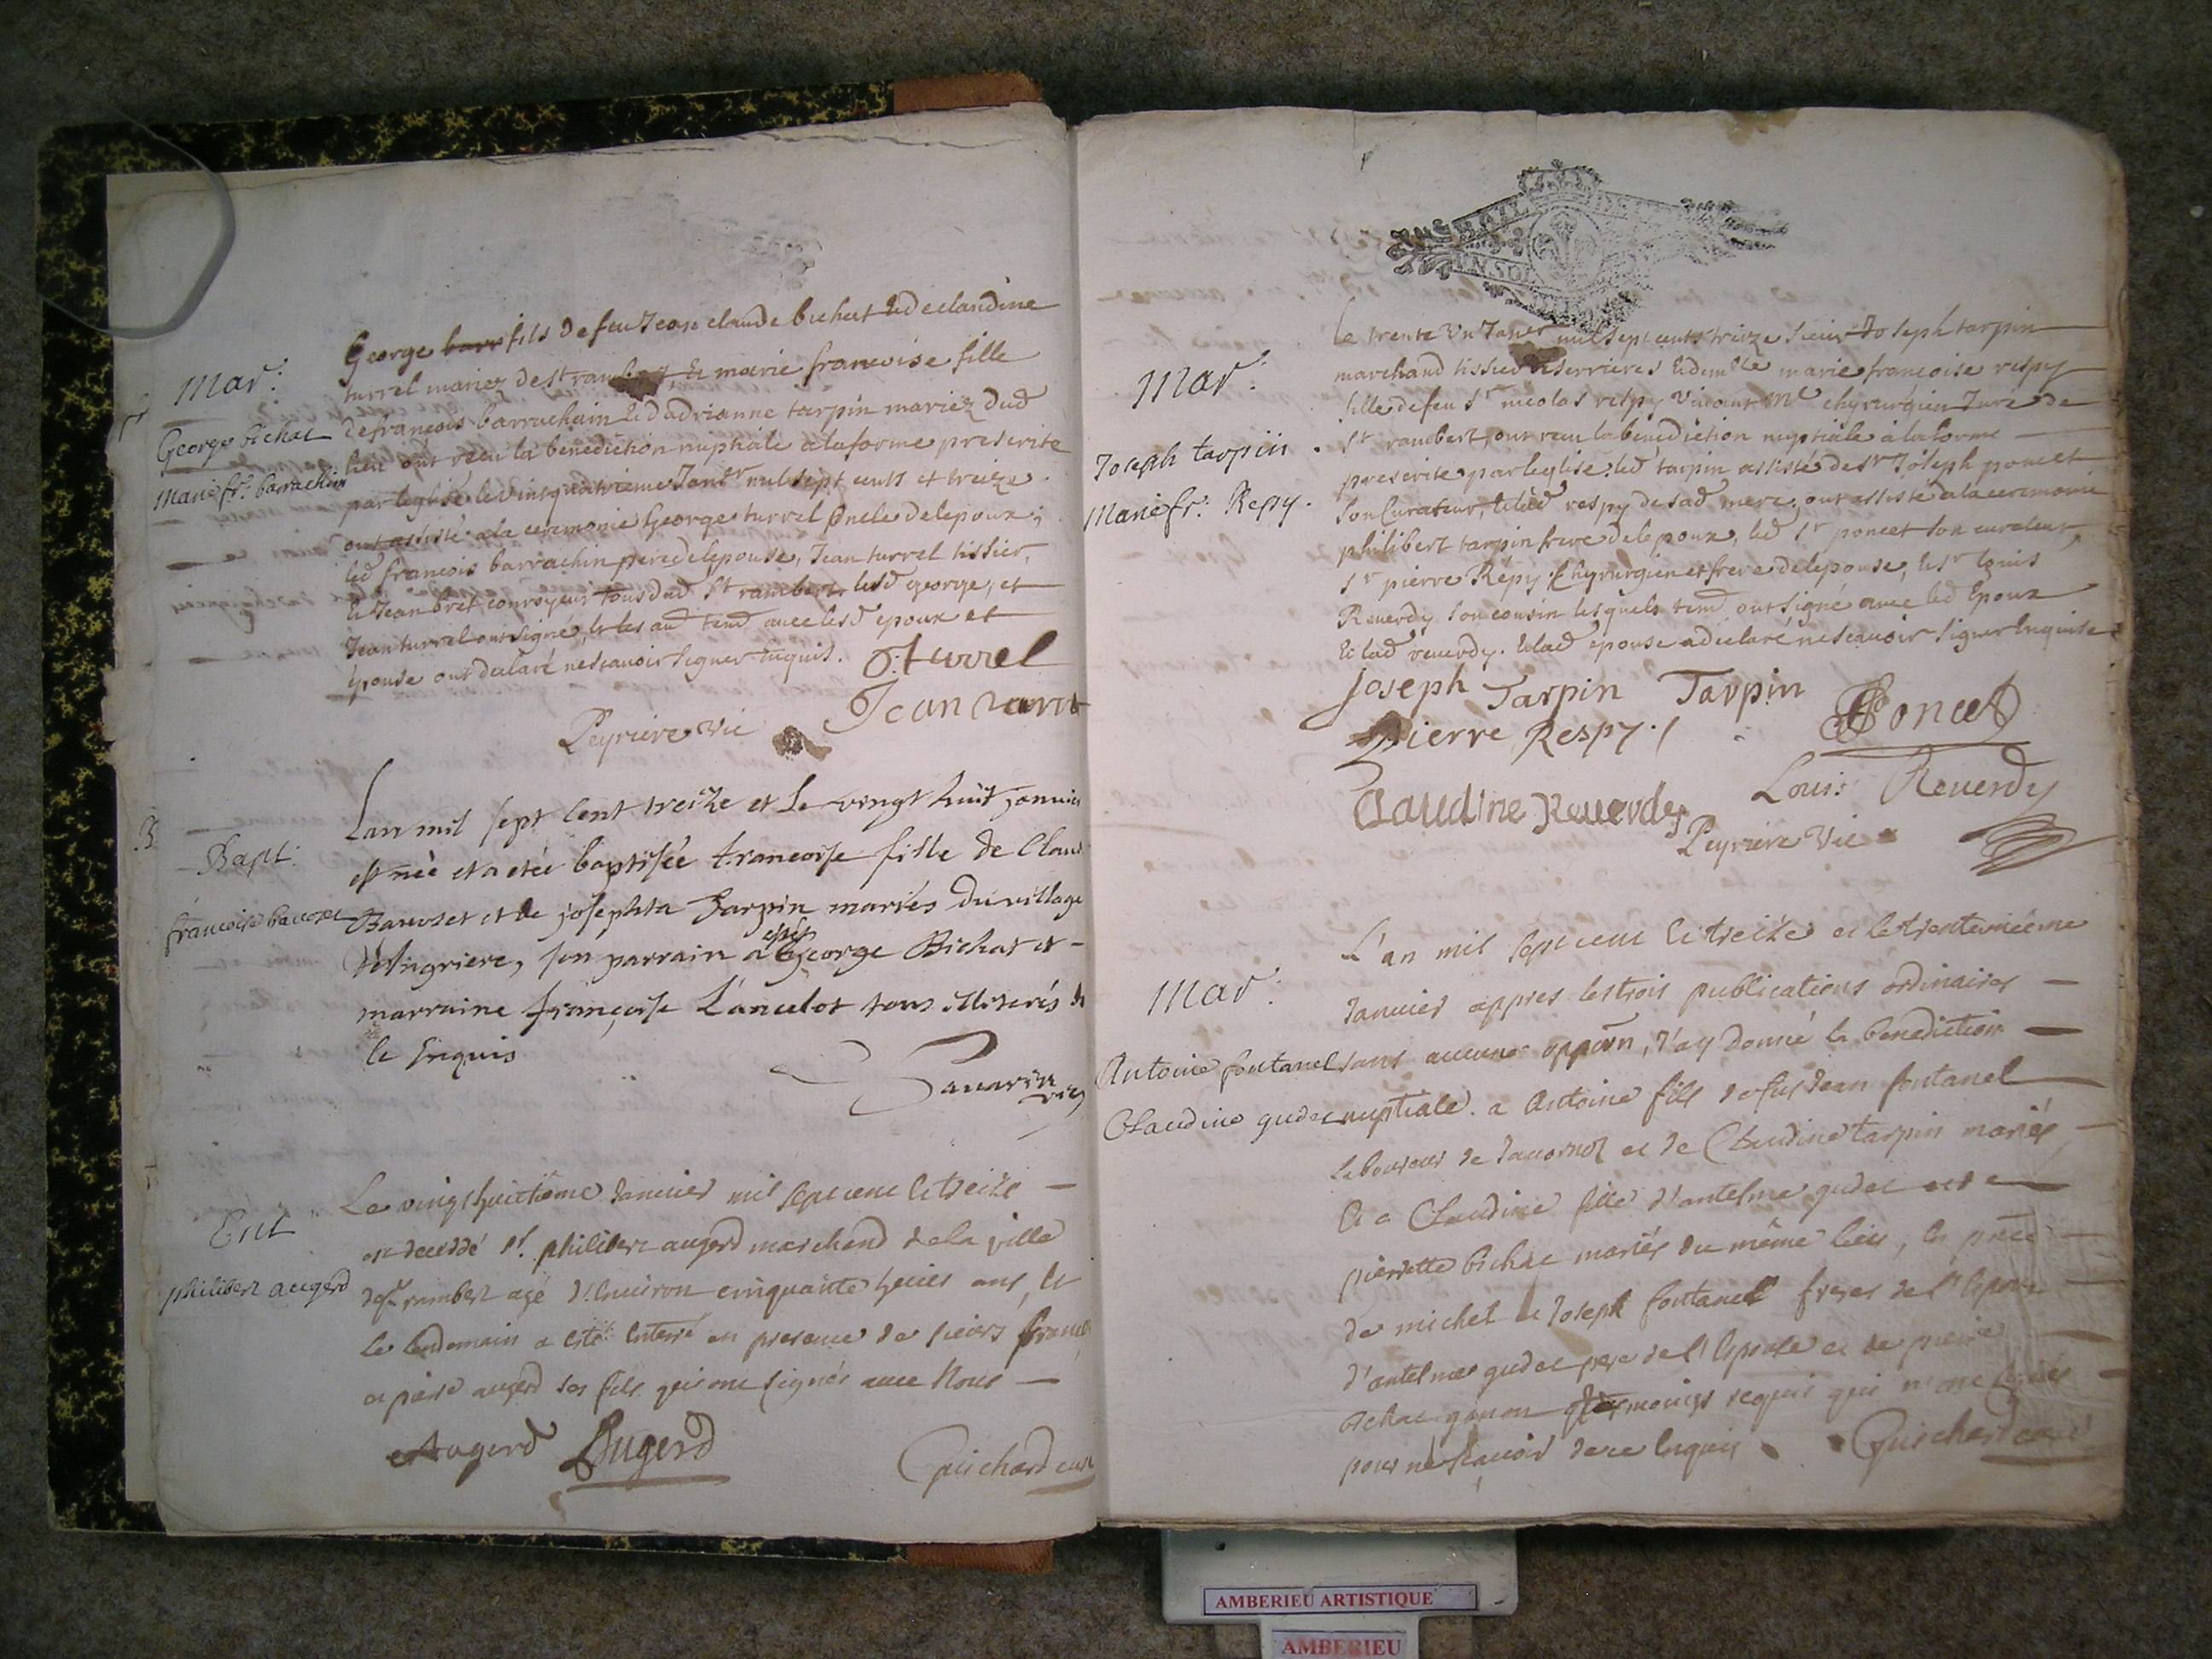 Mar:
George bichat
Marie fr: barrachin
George fils de feu Jean claude bichat & de claudine
turrel mariez de st rambert & marie francoise fille
de francois barrachin & d adrianne tarpin mariez dud
lieu ont receu la benediction nuptiale a la forme prescrite
par leglise le vint quatrieme Janr mil sept cents et treize
ont assisté a la ceremonie George turrel oncle de lepoux,
led francois barrachin pere de lepouse, Jean turrel tissier,
& Jean bret conroyeur tous dud St rambert lesd george, et
Jean turrel ont signé, & les au temd avec lesd epoux et
epouse ont declaré ne scavoir signer enquis.
G. turrel
Jean
Peyriere vic
Bapt:
francoise
Lan mil sept cent treize et le vingt huit janvier
est née et a etée baptisée francoise fille de Claud
et de josephta Tarpin mariés du village
son parrain a esté George Bichat et
marraine françoise Lancelot tous illiterés de
le Enquis
Savarin vic
Ent
philibert augerd
Le vingt huictieme Janvier mil sept cent & treize
est decedé sr. philibert augerd marchand de la ville
de st rambert agé d'Environ cinquante ans, &
le lendemain a esté Enterré en presence de sieurs
et pierre augerd ses fils qui ont signés avec Nous
Augerd Augerd
Guichard curé
Mar:
Joseph tarpin
Marie fr: Repy.
Le trente un Janer mil sept cents treize sieur Joseph tarpin
marchand tissier de serrieres & demlle marie francoise respy
fille de feu Sr nicolas respy vivant Me chyrurgien Juré de
St rambert, ont receu la benediction nuptiale à la forme
prescrite par leglise, led tarpin assisté de sr Joseph poncet
son Curateur, & lad respy de sad mere, ont assisté a la ceremonie
philibert tarpin frere de lepoux, led Sr poncet son curateur,
Sr pierre Repy Chyrurgien et frere de lepouse, & sr Louis
Reverdy son cousin lesquels temd ont signé avec led Epoux
& lad reverdy. & lad epouse a declaré ne scavoir signer Enquise
joseph Tarpin Tarpin
Poncet
Pierre Respy
Louis Reverdy
Claudine Reverdy
Peyriere Vic
Mar:
Antoine fontanel
Claudine gudet
L'an mil sept cent & treize et le trenteunieme
Janvier appres les trois publications ordinaires
sans aucune oppon, J'ay donné la benediction
nuptiale. a Antoine fils de fus Jean fontanel
laboureur de et de Claudine tarpin mariés,
Et a Claudine fille d'antelme gudet et de
pierrette bichat mariés du même lieu, En
de michel & Joseph fontanel freres de l'Epoux
d'antelme gudet pere de l'Epouse et de pierre
bichat temoings requis qui n'ont signés
pour ne scavoir de ce Enquis. Guichard curé
AMBERIEU ARTISTIQUE
AMBERIEU